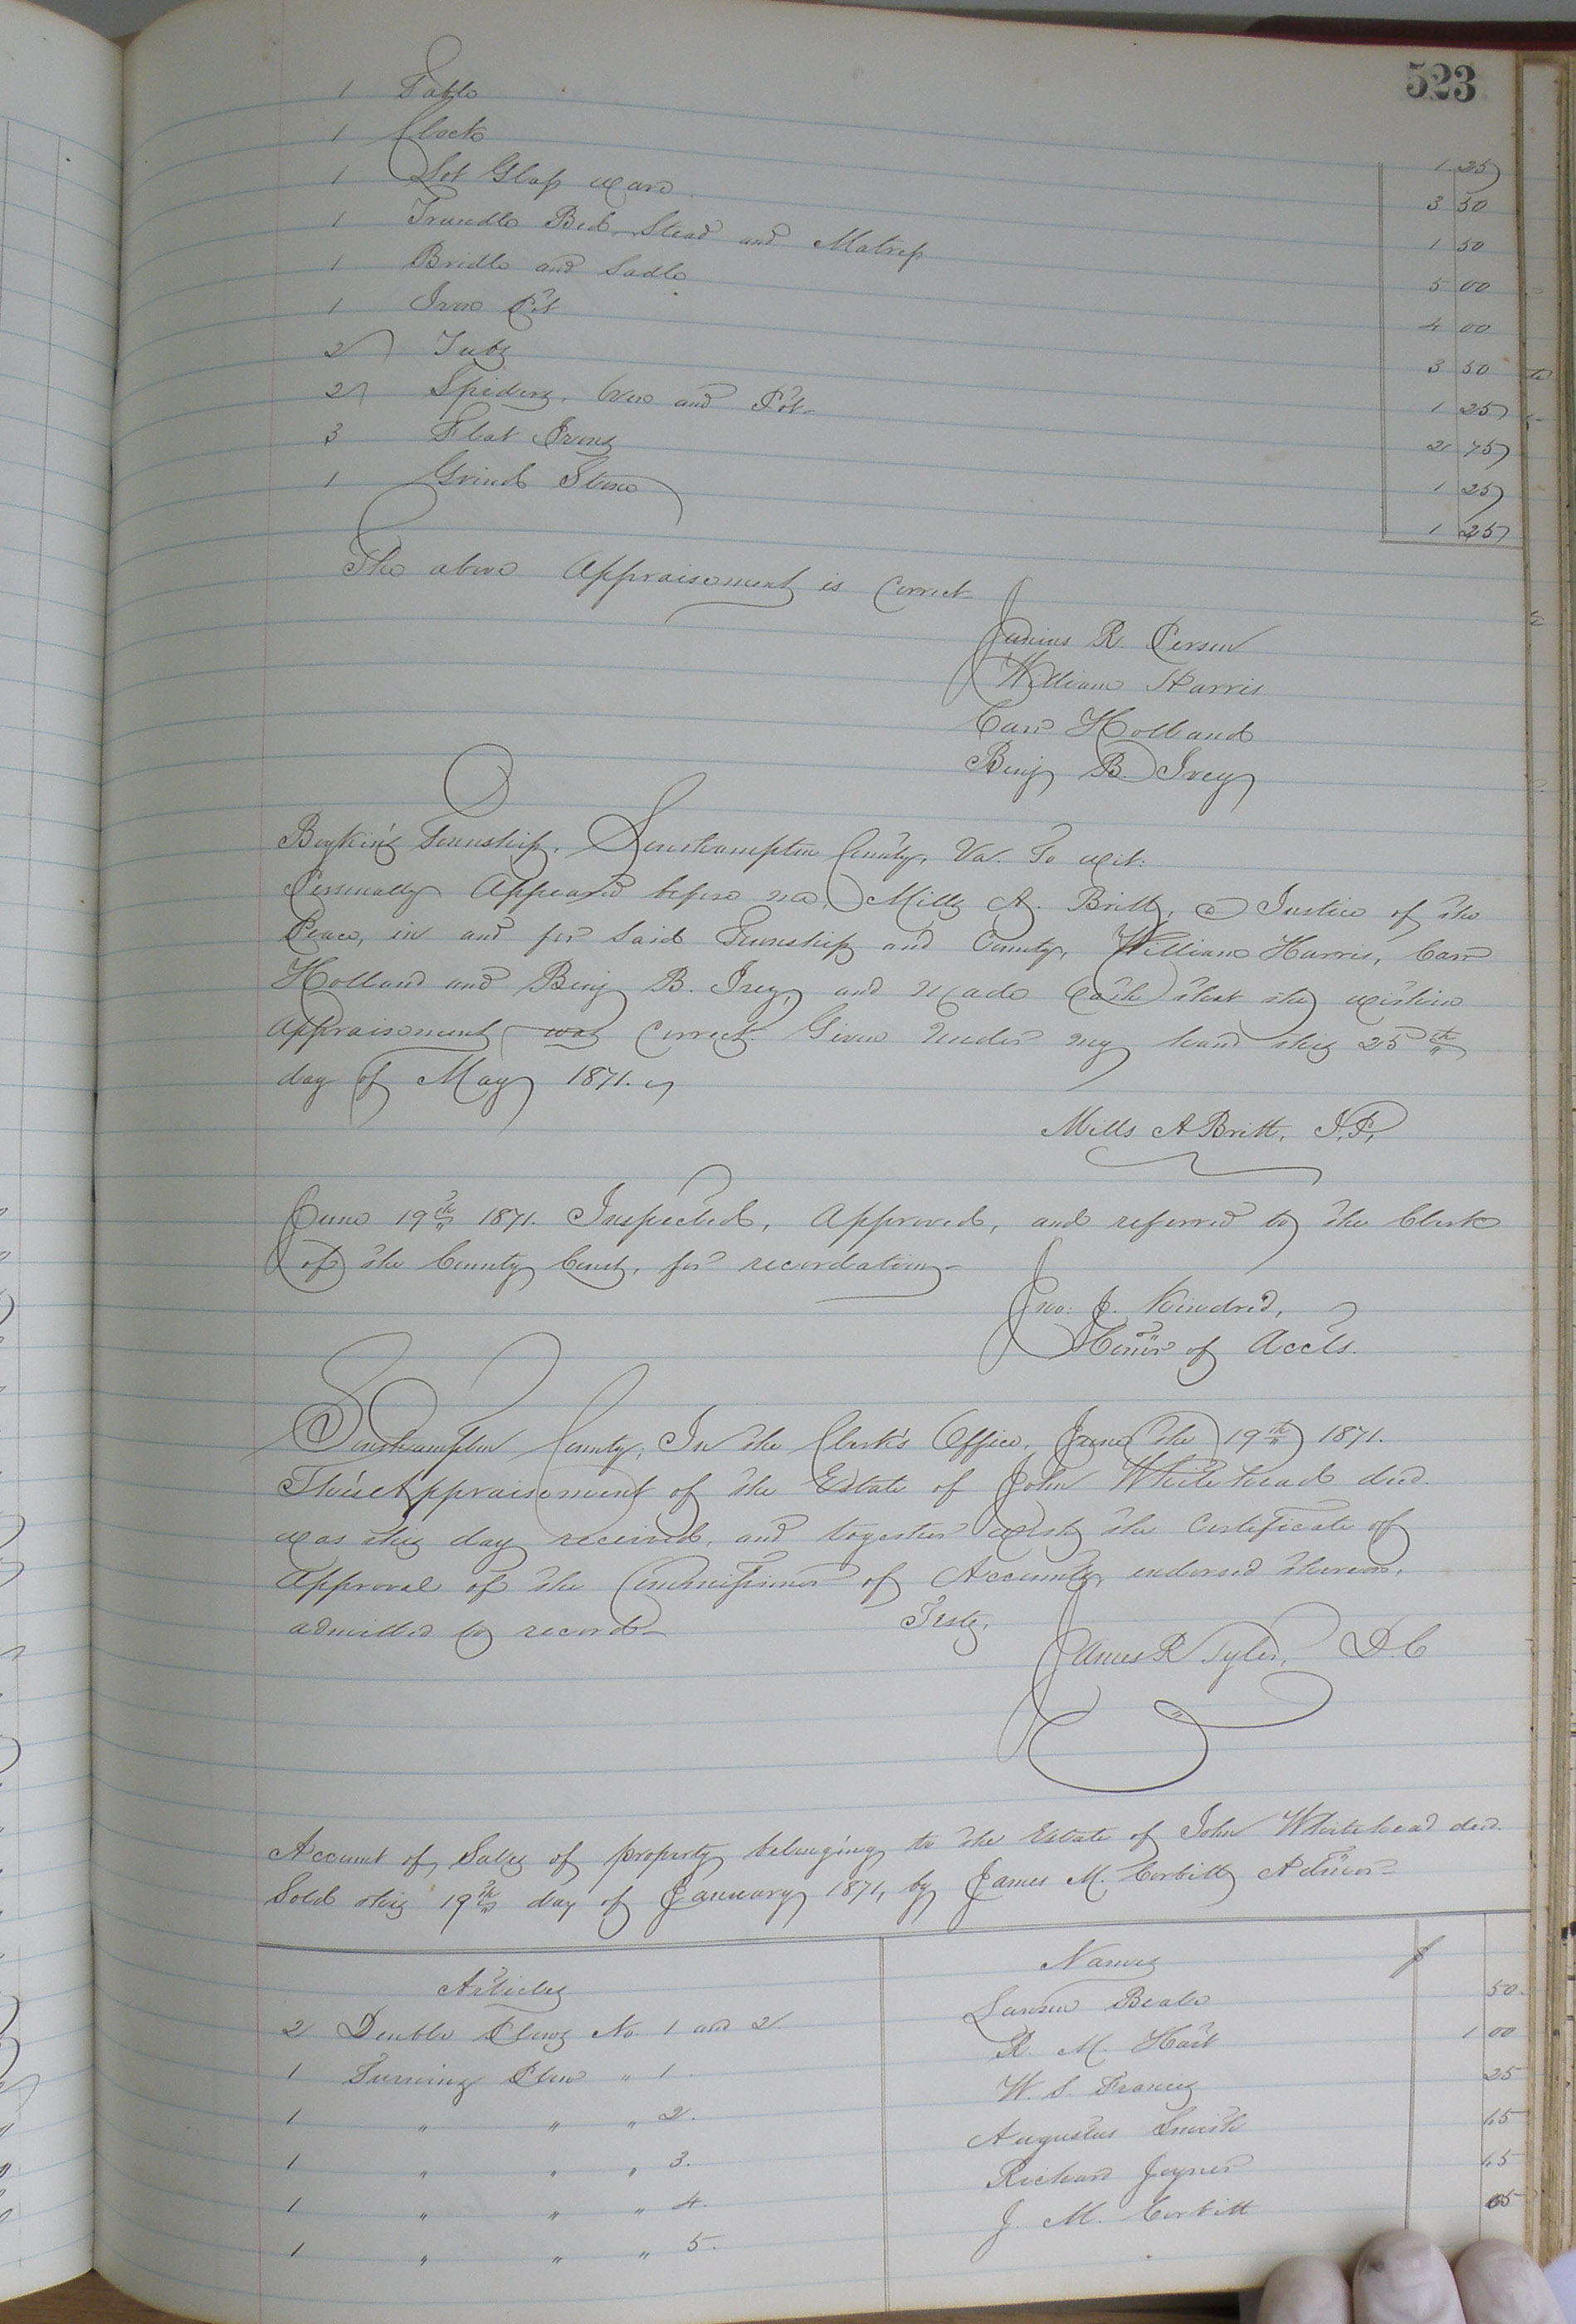 523
1 Table 1 25
1 Clock 3 50
1 Lot Glass ware 1 50
1 Trundle Bed-Stead and Matress 5 00
1 Bridle and Sadle 4 00
1 Iron Pot 3 50
2 Tubs 1 25
2 Spiders, Oven and Pot 2 75
3 Flat Irons 1 25
1 Grind Stone 1 25
The above Appraisement is Correct
Junius R. Person
William Harris
Carr Holland
Benj B. Ivey
Boykins Township, Southampton County, Va. To wit:
Personally Appeared before me, Mills A. Britt, a Justice of the
Peace, in and for Said Township and County, William Harris, Carr
Holland and Benj B. Ivey, and made Oath that the within
Appraisement was Correct. Given under my hand this 25th
day of May 1871.
Mills A Britt, J.P.
June 19th 1871. Inspected, Approved, and referred to the Clerk
of the County Court, for recordation
Jno: J. Kindred,
Comr of Accts.
Southampton County; In the Clerk's Office, June the 19th 1871.
This Appraisement of the Estate of John Whitehead decd.
was this day received, and together with the Certificate of
Approval of the Commissioner of Accounts, endorsed thereon,
admitted to record Teste,
James R Tyler, D.C
Account of Sales of property belonging to the Estate of John Whitehead decd.
Sold this 19th day of January 1871, by James M. Corbitt Admor
Articles Names $
2 Double Plows No. 1 and 2 Beale 50
1 Turning Plow " 1 R. M. Hart 1 00
1 " " " 2. W. S. Francis 25
1 " " " 3. Augustus Smith 15
1 " " " 4. Richard Joyner 15
1 " " " 5. J. M. Corbitt 05